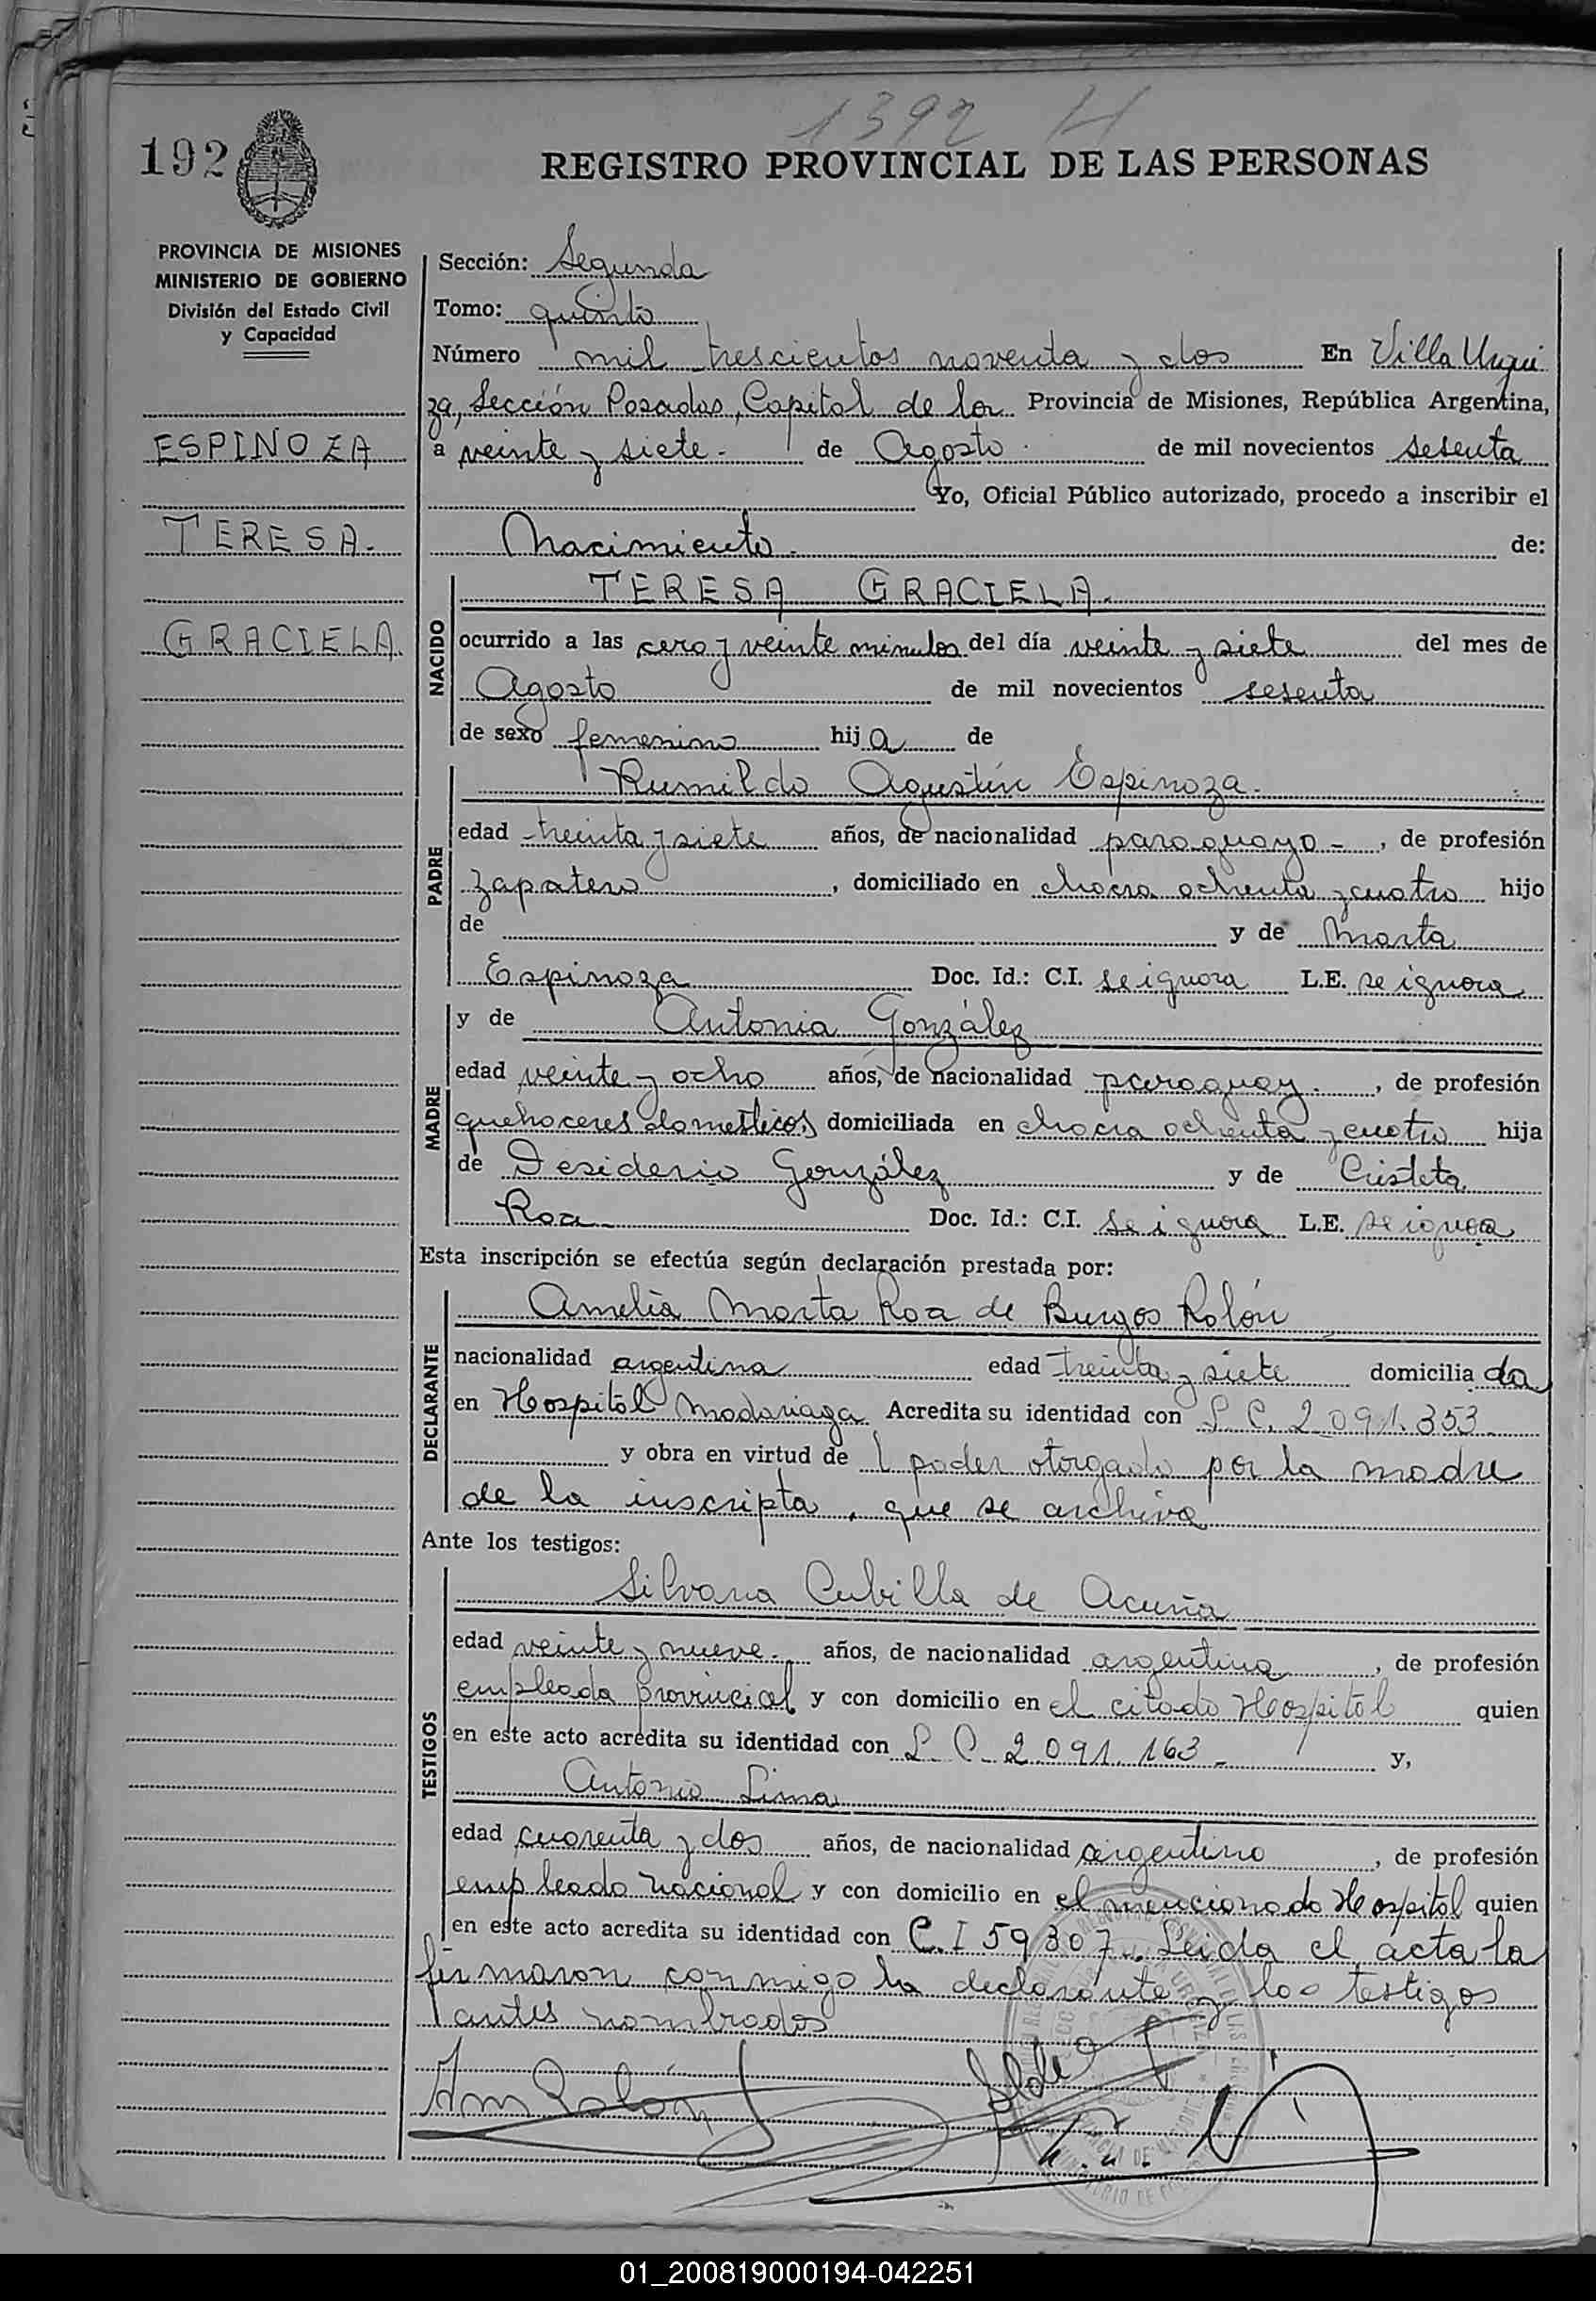 1392 H
192
REGISTRO PROVINCIAL DE LAS PERSONAS
PROVINCIA DE MISIONES
MINISTERIO DE GOBIERNO
División del Estado Civil
y Capacidad
ESPINOZA
TERESA.
GRACIELA.
Sección: Segunda
Tomo: quinto
Número mil trescientos noventa y dos En Villa Urqui
za, Sección Posadas, Capital de la Provincia de Misiones, República Argentina,
a veinte y siete. de Agosto de mil novecientos sesenta
Yo, Oficial Público autorizado, procedo a inscribir el
Nacimiento. de:
NACIDO
TERESA GRACIELA.
ocurrido a las cero y veinte minutos del día veinte y siete del mes de
Agosto de mil novecientos sesenta
de sexo femenino hija de
PADRE
Rumildo Agustín Espinoza.
edad treinta y siete años, de nacionalidad paraguayo -, de profesión
zapatero, domiciliado en chacra ochenta y cuatro hijo
de y de Marta
Espinoza Doc. Id.: C.I. se ignora L.E. se ignora
MADRE
y de Antonia González
edad veinte y ocho años, de nacionalidad paraguay., de profesión
quehaceres domesticos domiciliada en chacra ochenta y cuatro hija
de Desiderio González y de Cristeta
Roa Doc. Id.: C.I. se ignora L.E. se ignora
Esta inscripción se efectúa según declaración prestada por:
DECLARANTE
Amelia Marta Roa de Burgos Rolón
nacionalidad argentina edad treinta y siete domiciliada
en Hospital Madariaga Acredita su identidad con L.C. 2.091.353
y obra en virtud de l poder otorgado por la madre
de la inscripta, que se archiva
Ante los testigos:
TESTIGOS
Silvana Cubilla de Acuña
edad veinte y nueve. años, de nacionalidad argentina, de profesión
empleada provincial y con domicilio en el citado Hospital quien
en este acto acredita su identidad con L.C. 2.091.163 - y,
Antonio Lima
edad cuarenta y dos años, de nacionalidad argentino, de profesión
empleado nacional y con domicilio en el mencionado Hospital quien
en este acto acredita su identidad con C.I 59307. Leida el acta la
firmaron conmigo la declarante y los testigos
antes nombrados
Am Rolón
01_200819000194-042251